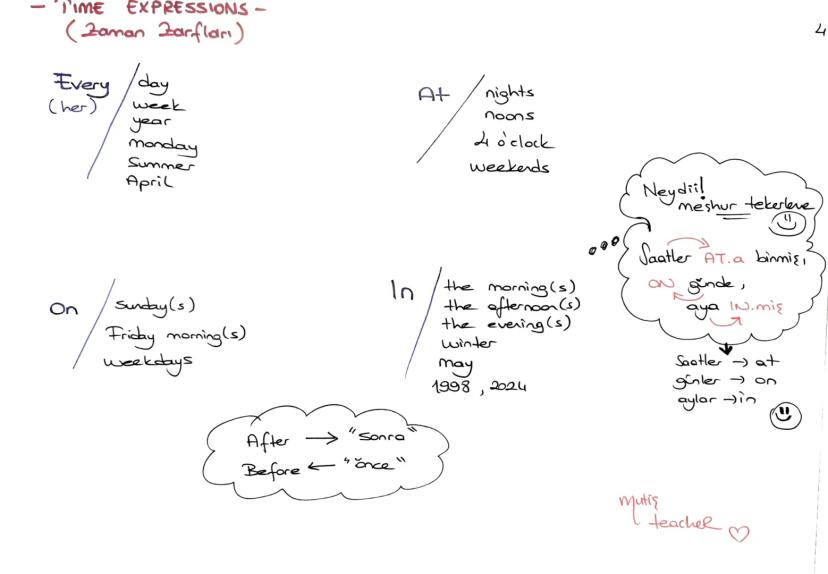 - TIME EXPRESSIONS -
(Zaman Zarfları)
4
Every
(her)
day
week
year
monday
Summer
April
At
nights
noons
4 o'clock
weekends
On
Sunday(s)
Friday morning(s)
weekdays
In
the morning(s)
the afternoon(s)
the evening(s)
winter
may
1998, 2024
Neydii!
meşhur tekerleme
Saatler AT.a binmiş,
ON günde,
aya IN.miş
Saatler → at
günler → on
aylar → in
After → "sonra"
Before ← "önce"
mutiş
teacher